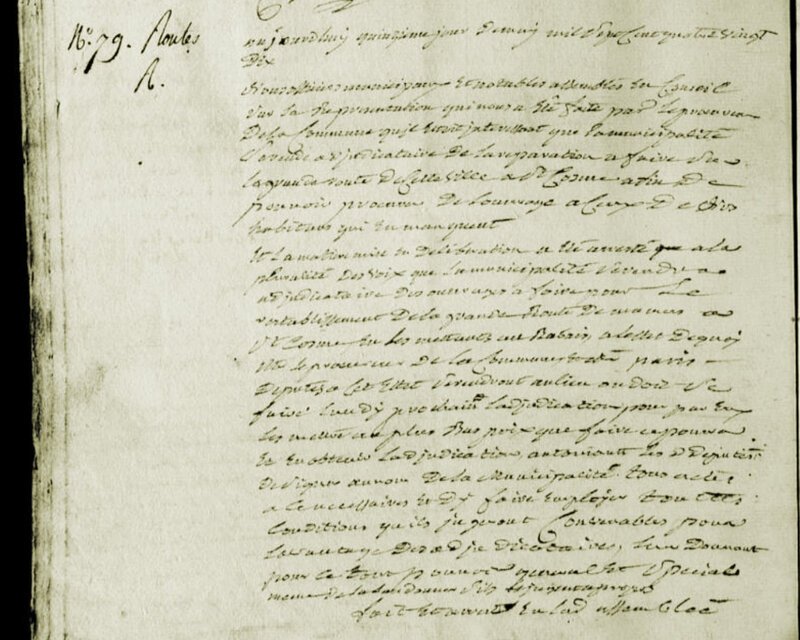 N.° 79. Routes
R.
aujourdhuy quinzieme jour de may mil sept Cent quatre vingt
Dix
Nous officiers municipaux Et notables assemblés En Conseil
Sur la Representation qui nous a Eté faite par le procureur
De la Commune qu'il Etoit interessant que la municipalité
Se rende adjudicataire De la reparation a faire Sur
la grande route De Cette ville a St Cosme afin De
pouvoir procurer De Louvrage a Ceux De Ses
habitans qui En manquent
Et la matiere mise En Deliberation a Eté arresté que a la
pluralité Des voix que la municipalité Se rendra
adjudicataire Des ouvrages a faire pour Le
retablissement De la grande Route De mamers a
St Cosme En les mettant au Rabais, a leffet De quoy
Mr le procureur De la Commune Et Mr paris
Deputés a Cet Effet Se rendront au lieu ou doit Se
faire lundy prochain Ladjudication pour par Eux
les mettre au plus Bas prix que faire ce poura
Et En obtenir Ladjudication, autorisant les Srs Deputés
De Signer au nom De la Municipalité tous actes
a Ce necessaires Et Dy faire Employer toutes
Conditions qu'ils jugeront Convenables pour
Lavantage Des adjudicataires, leur Donnant
pour Ce tout pouvoir general Et Special
meme de
fait Et arresté En lad assemblée